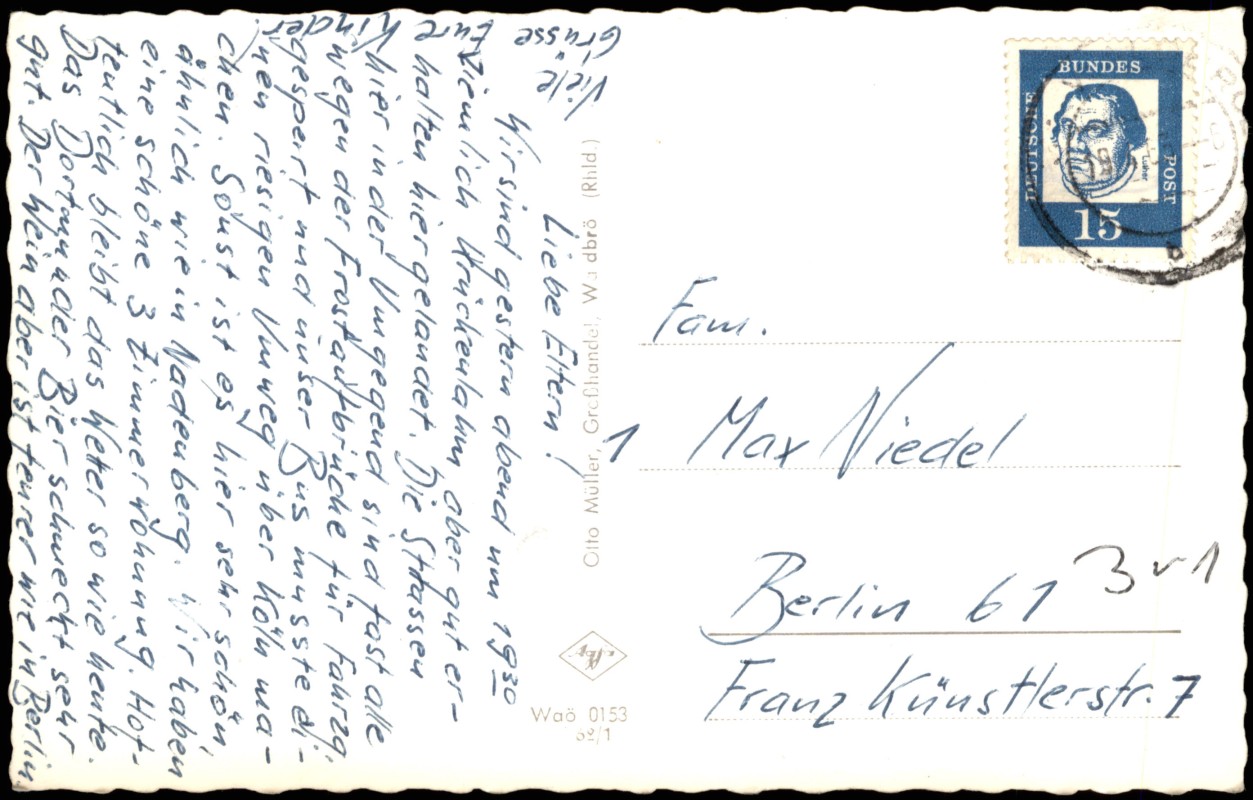 Liebe Eltern!
Wir sind gestern abend um 19³⁰
ziemlich Krückenlahm aber gut er-
halten hier gelandet. Die Strassen
hier in der Umgegend sind fast alle
wegen der Frostaufbrüche für Fahrzg.
gesperrt und unser Bus musste ei-
nen riesigen Umweg über Köln ma-
chen. Sonst ist es hier sehr schön,
ähnlich wie in Nadenberg. Wir haben
eine schöne 3 Zimmerwohnung. Hof-
fentlich bleibt das Weter so wie heute.
Das Dortmunder Bier schmeckt sehr
gut. Der Wein aber ist teurer wie in Berlin.
Viele
Grüsse Eure
Kinder.
Otto Müller, Großhandel, Waldbrö (Rhld.)
Waö 0153
62/1
DEUTSCHE
BUNDES
POST
Luther
15
Fam.
1 Max Niedel
Berlin 61
3 v 1
Franz Künstlerstr. 7